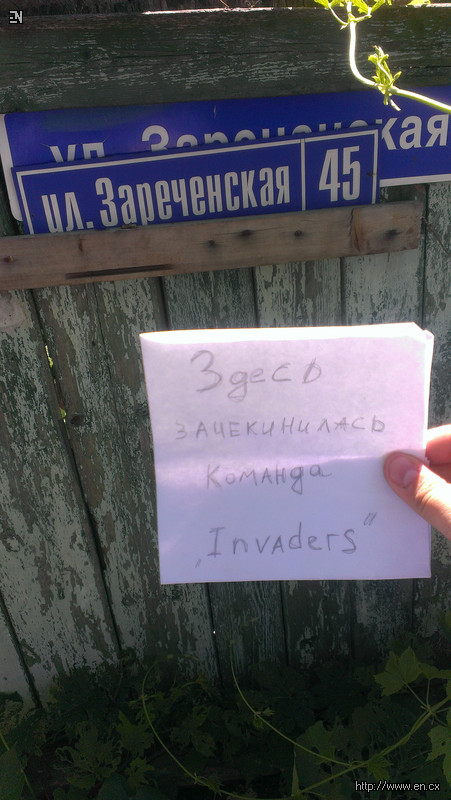 EN
ул. Зареченская
ул. Зареченская 45
Здесь
зачекинилась
команда
„Invaders"
http://www.en.cx